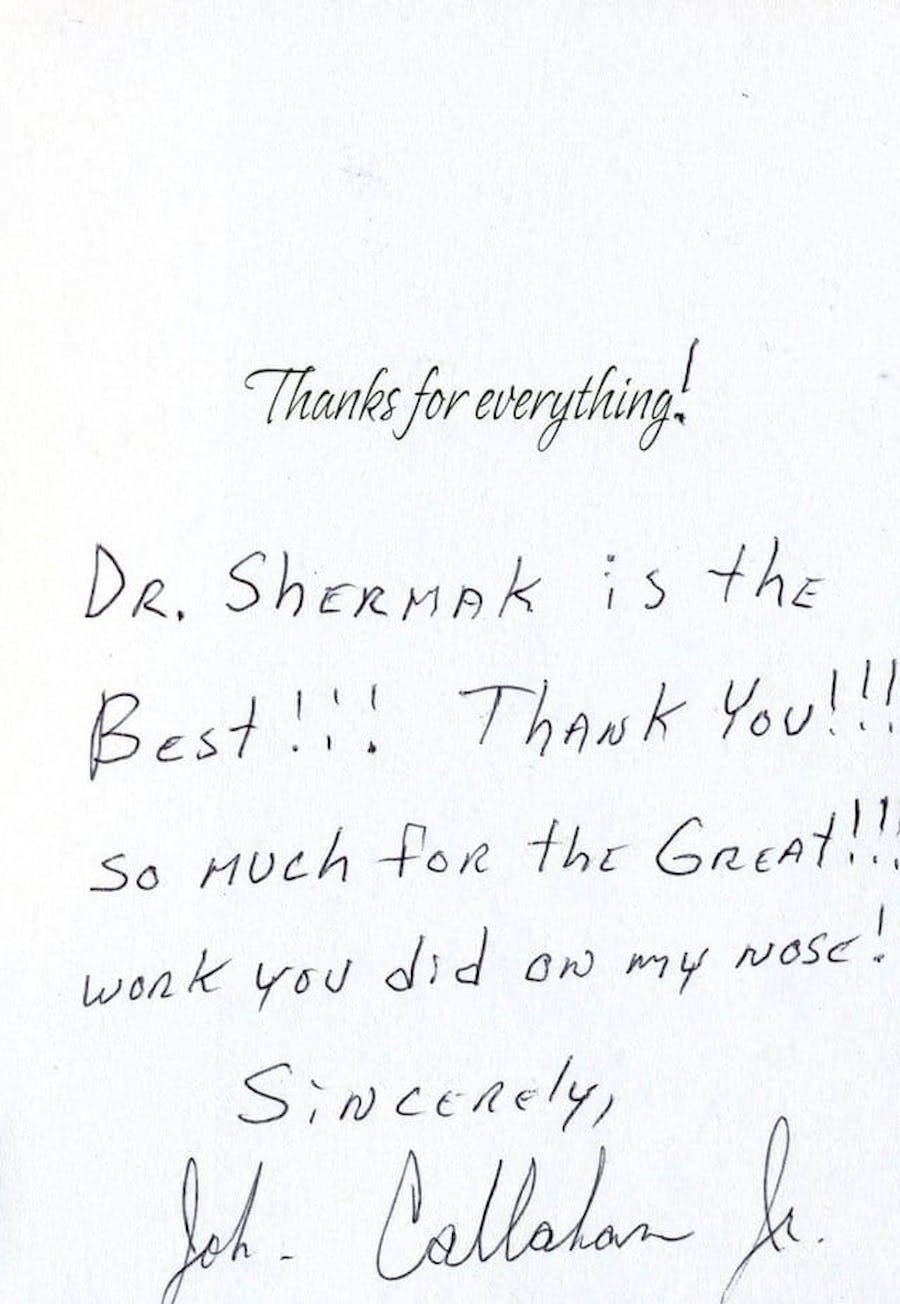 Thanks for everything!
Dr. Shermak is the
Best!!! Thank You!!!
so much for the Great!!!
work you did on my nose!
Sincerely,
Joh. Callahan Jr.